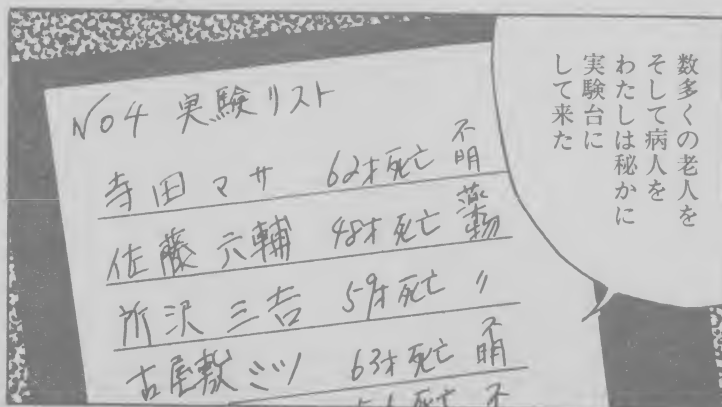 数多くの老人を
そして病人を
わたしは秘かに
実験台に
して来た
No4 実験リスト
寺田マサ 62才死亡 不明
佐藤六輔 48才死亡 薬物
所沢三吉 59才死亡 〃
古屋敷ミツ 63才死亡 不明
死亡 不